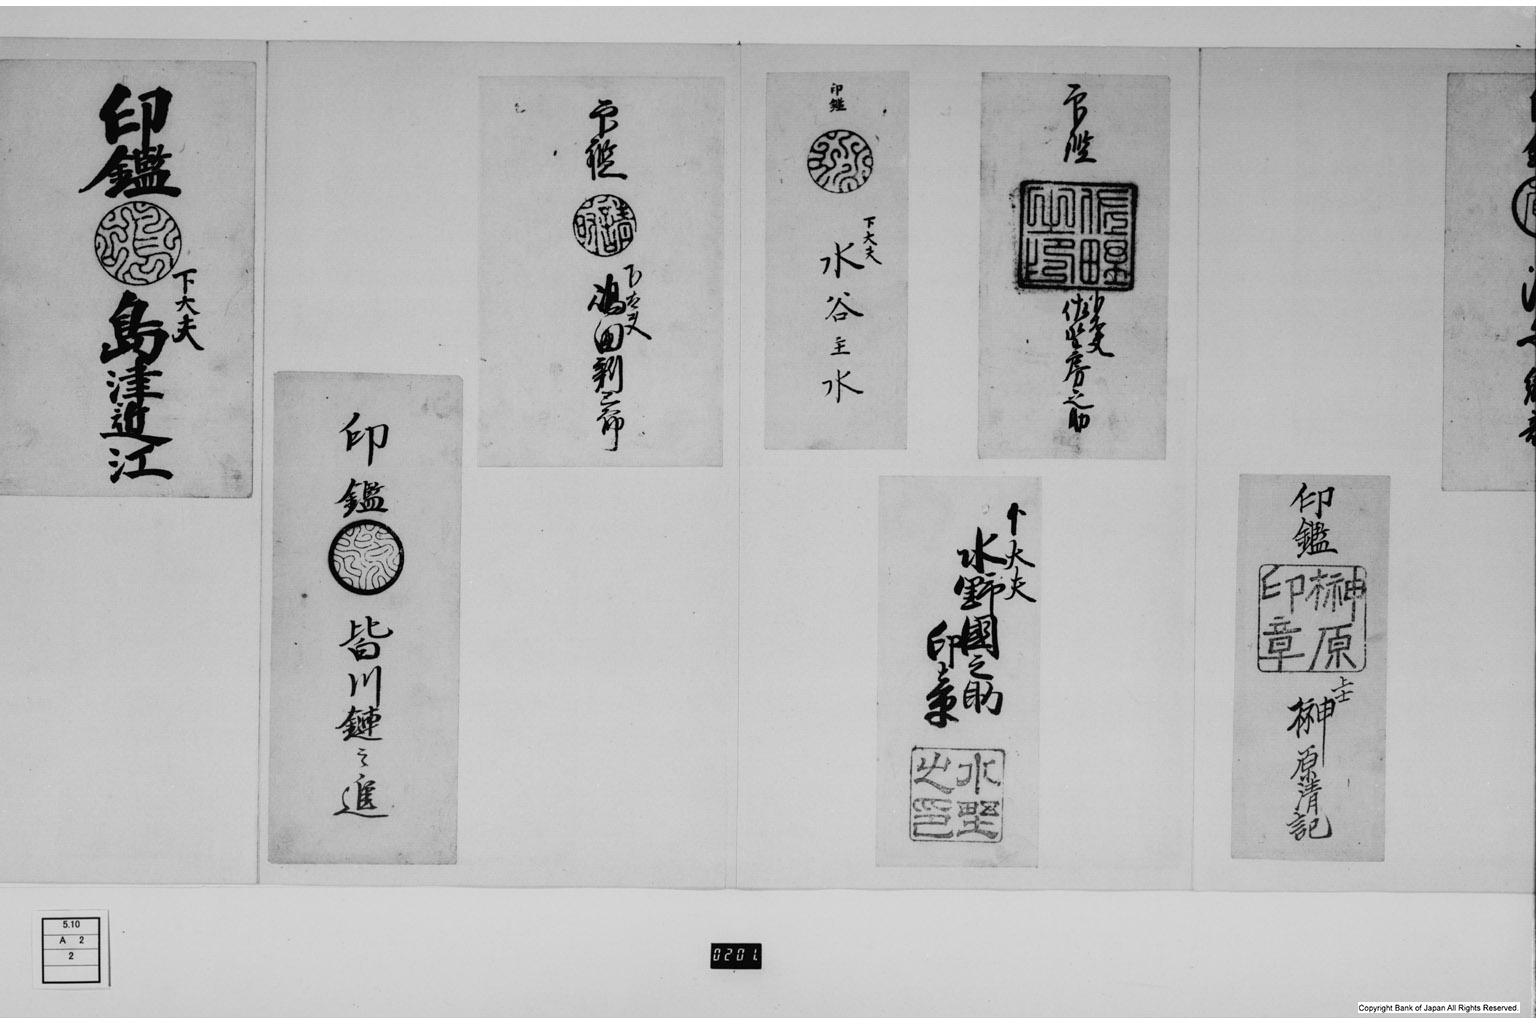 印鑑
榊原
印章
上士
榊原清記
印鑑
下大夫
佐野房之助
下大夫
水野國之助
印章
水野
之印
印鑑
下大夫
水谷主水
印鑑
下大夫
島田釗三郎
印鑑
皆川鏈之進
印鑑
下大夫
島津近江
5.10
A 2
2
0201
Copyright Bank of Japan All Rights Reserved.